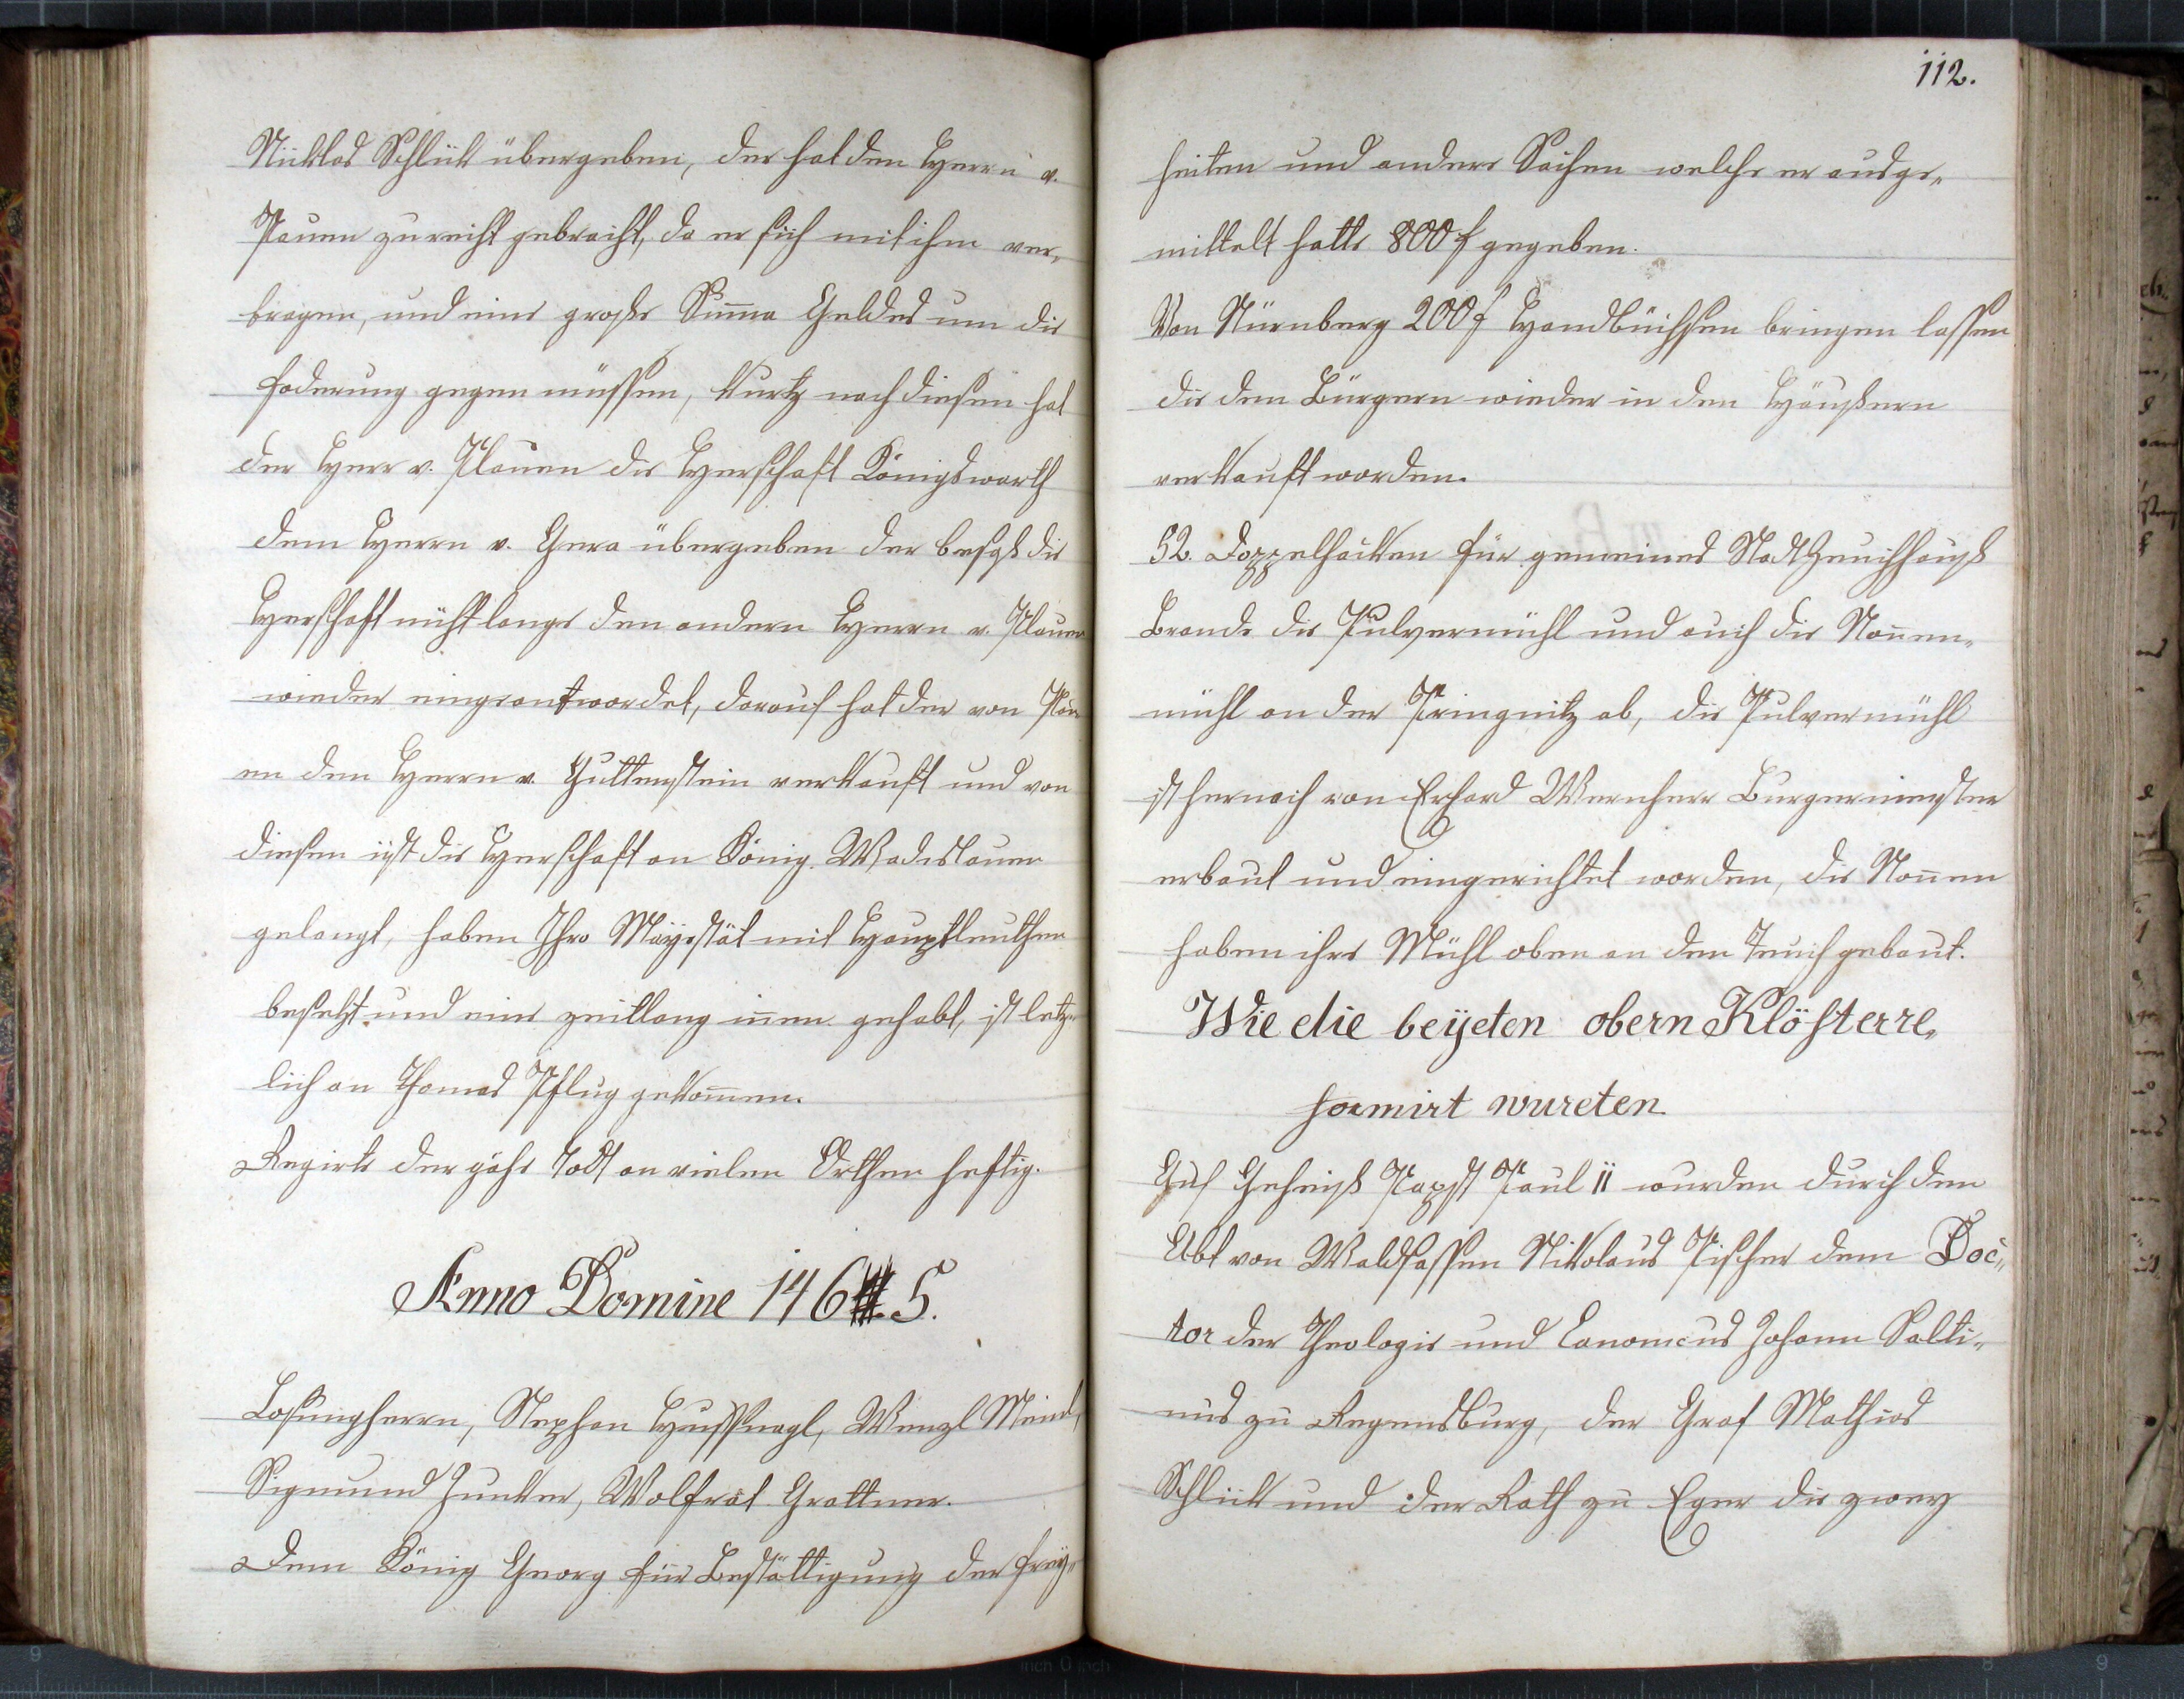 Nicklas Schlick übergeben, der hat den Herrn v.
Pauen zurecht gebracht, da er sich mit ihm ver„
bragen, und eine große Suma Geldes um die
Foderung gegen müssen, kurtz nach diesen hat
der Herr v. Plauen die Herschaft Königswarth
dem Herrn v. Gera übergeben der besaß die
Herschaft nicht lange den andern Herrn v. Plauen
wieder eingeantwordet, darauf hat der von Plau
en den Herrn v. Guttenstein verkauft und von
diesen ist die Herschaft an König Wadislauen
gelangt, haben Ihro Mayestät mit Hauptleuthen
besetzt und eine zeitlang innen gehabt, ist letz„
lich an Thomas Pflug gekommen.
Regirte der gähe Todt an vielen Orthen heftig.
Anno Domine 146 5.
Losungherrn, Stephan Huffnagl, Wenzl Meindl,
Sigmund Junker, Wolfrat Grattner.
Dem König Georg für Bestättigung der Frey„
112.
heiten und andere Sachen welche er ausge„
mittelt hatte 800 f gegeben.
Von Nürnberg 200 f Handbüchsen bringen lassen
die den Bürgern wieder in den Häußern
verkauft worden.
52. Doppelhacken für gemeines Stadtzeuchhauß
Brande die Pulvermühl und auch die Nonen„
mühl an der Pringnitz ab, die Pulvermühl
ist hernach von Erhard Wernherr Burgermeister
erbaut und eingerichtet worden, die Nonen
haben ihre Mühl oben an den Teuch gebaut.
Wie die beyden obern Klöster re„
formirt wurden
Auf Geheiß Papst Paul II wurden durch den
Abt von Waldsassen Nikolaus Pischer dem Doc„
tor der Theologie und Canonicus Johann Salti„
nus zu Regensburg, der Graf Mathias
Schlick und der Rath zu Eger die zwey